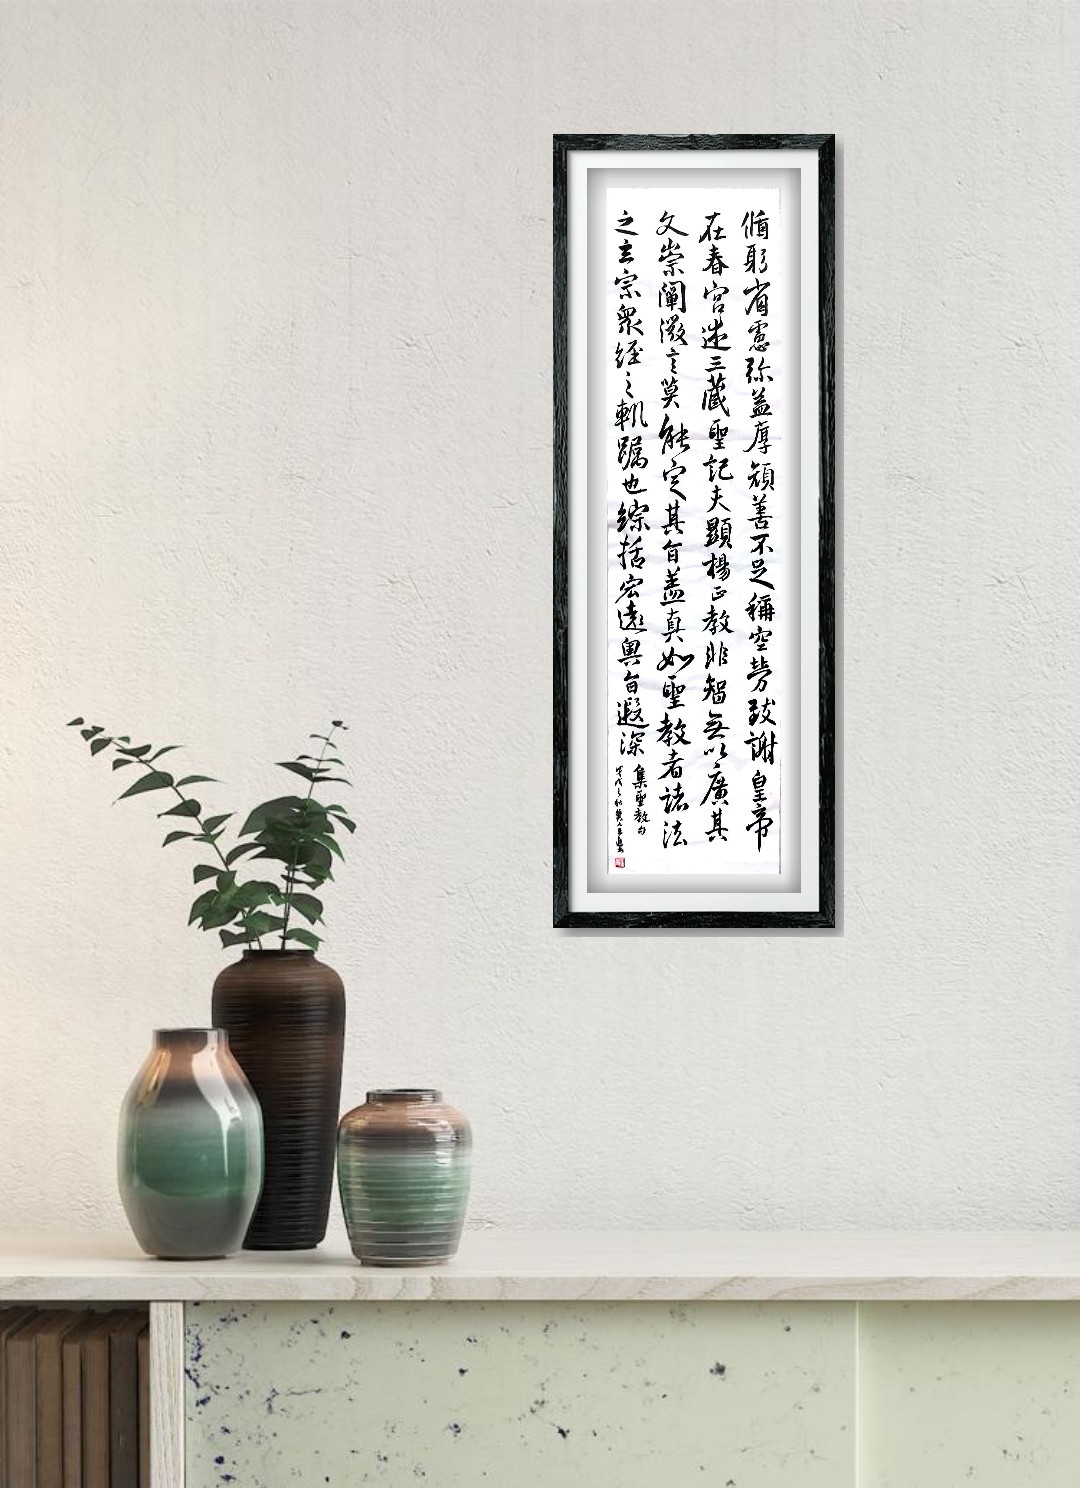 循躬省慮弥益厚顏善不足稱空勞致謝皇帝
在春宮述三藏聖記夫顯揚正教非智無以廣其
文崇闡微言莫能定其旨盖真如聖教者諸法
之玄宗眾經之軌躅也綜括宏遠奧旨遐深
集聖教句